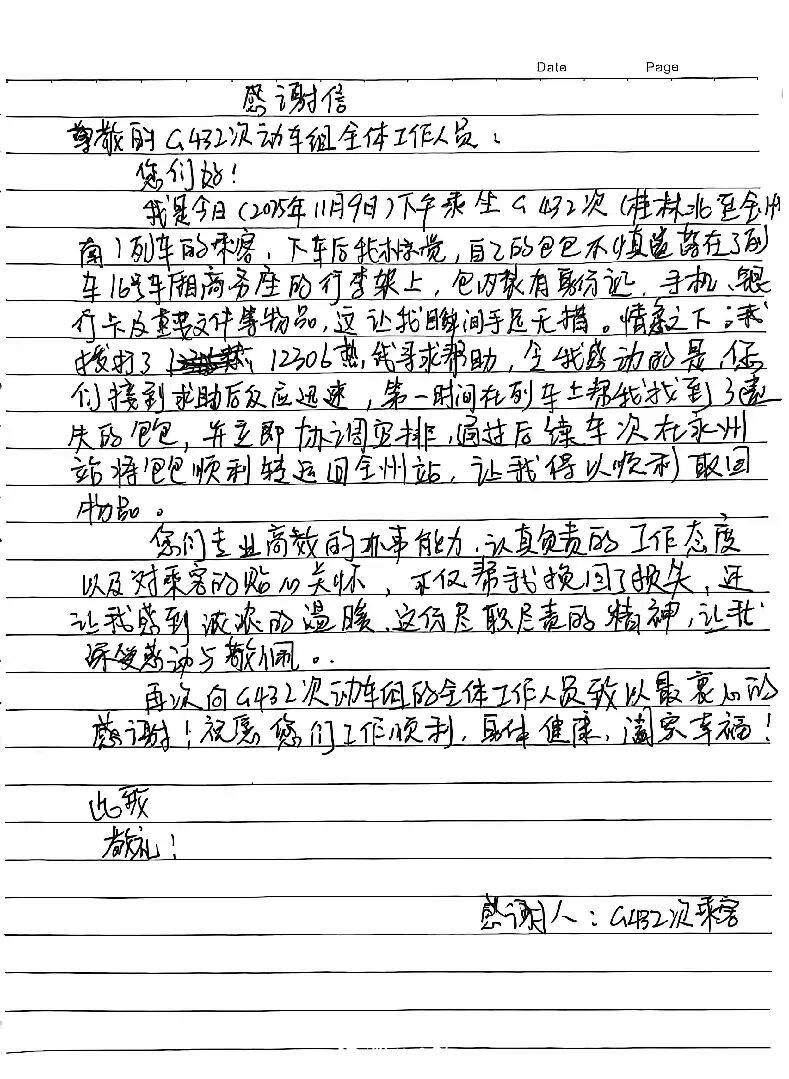 Date Page
感谢信
尊敬的G432次动车组全体工作人员：
您们好！
我是今日（2025年11月9日）下午乘坐G432次（桂林北至全州
南）列车的乘客，下车后我才惊觉，自己的包包不慎遗落在了列
车16号车厢商务座的行李架上，包内装有身份证、手机、银
行卡及重要文件等物品，这让我瞬间手足无措。情急之下，我
拨打了12306热线寻求帮助，令我感动的是，你
们接到求助后反应迅速，第一时间在列车上帮我找到了遗
失的包包，并立即协调安排，通过后续车次在永州
站将包包顺利转运回全州站，让我得以顺利取回
物品。
您们专业高效的办事能力，认真负责的工作态度
以及对乘客的贴心关怀，不仅帮我挽回了损失，还
让我感到浓浓的温暖，这份尽职尽责的精神，让我
深受感动与敬佩。
再次向G432次动车组的全体工作人员致以最衷心的
感谢！祝愿您们工作顺利，身体健康，阖家幸福！
此致
敬礼！
感谢人：G432次乘客